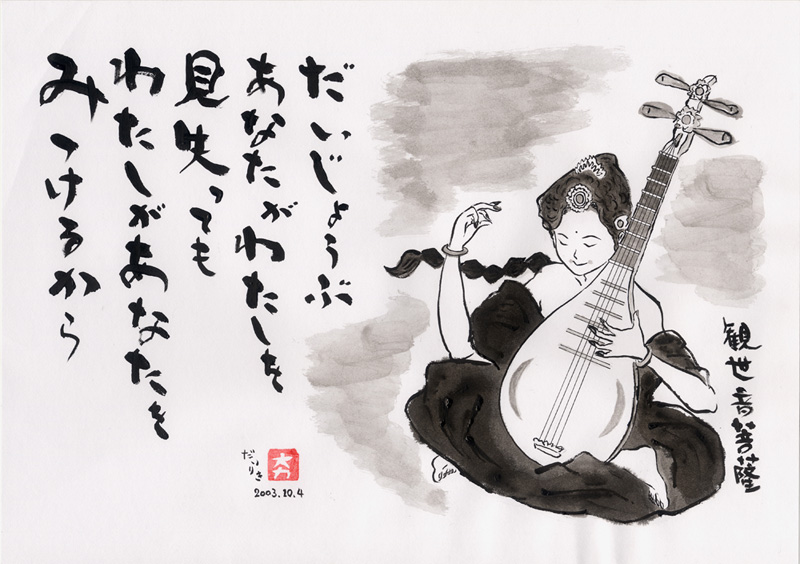 だいじょうぶ
あなたがわたしを
見失っても
わたしがあなたを
みつけるから
だいりき
大力
2003.10.4
観世音菩薩